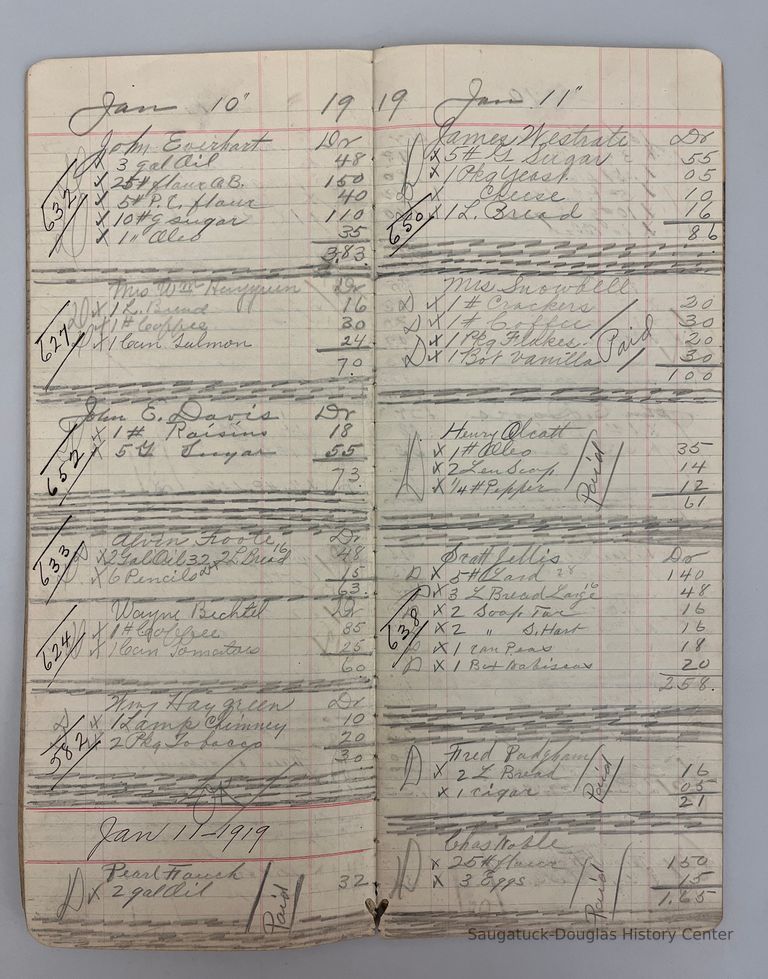 Jan 10" 19
John Everhart Dr
x 3 gal Oil 48
x 25# flour A.B. 150
632 x 5# P.C. flour 40
x 10# g sugar 110
x 1" Oleo 35
3.83
Mrs Wm Haygreen Dr
x 1 L. Bread 16
x 1# Coffee 30
627 x 1 Can Salmon 24
70
John E. Davis Dr
x 1# Raisins 18
652 x 5 G Sugar 55
73
Alvin Foote Dr
633 x 2 Gal Oil 32, 2 L Bread 16 48
x 6 Pencils 15
63
Wayne Bechtel Dr
624 x 1# Coffee 35
x 1 Can Tomatoes 25
60
Wm Haygreen Dr
D x 1 Lamp Chimney 10
582 x 2 Pkg Tobacco 20
30
Jan 11-1919
Pearl
D x 2 gal Oil 32
Paid
19 Jan 11"
James Westrate Dr
x 5# G Sugar 55
x 1 Pkg Yeast 05
D x Cheese 10
650 x 1 L. Bread 16
86
Mrs Snowbell
D x 1# Crackers 20
D x 1# Coffee 30
x 1 Pkg Flakes 20
D x 1 Bot Vanilla 30
Paid
100
Henry Olcott
D x 1# Oleo 35
x 2 Len Soap 14
x 1/4# Pepper 12
Paid
61
Dr
D x 5# Lard 28 140
D x 3 L Bread Large 16 48
638 x 2 Soap Tar 16
x 2 " S. Hart 16
D x 1 can Peas 18
D x 1 Box Nabiscos 20
258.
Fred Padgham
D x 2 L Bread 16
x 1 cigar 05
Paid
21
Chas Noble
D x 25# flour 150
x 3 Eggs 15
Paid
1.65
Saugatuck-Douglas History Center